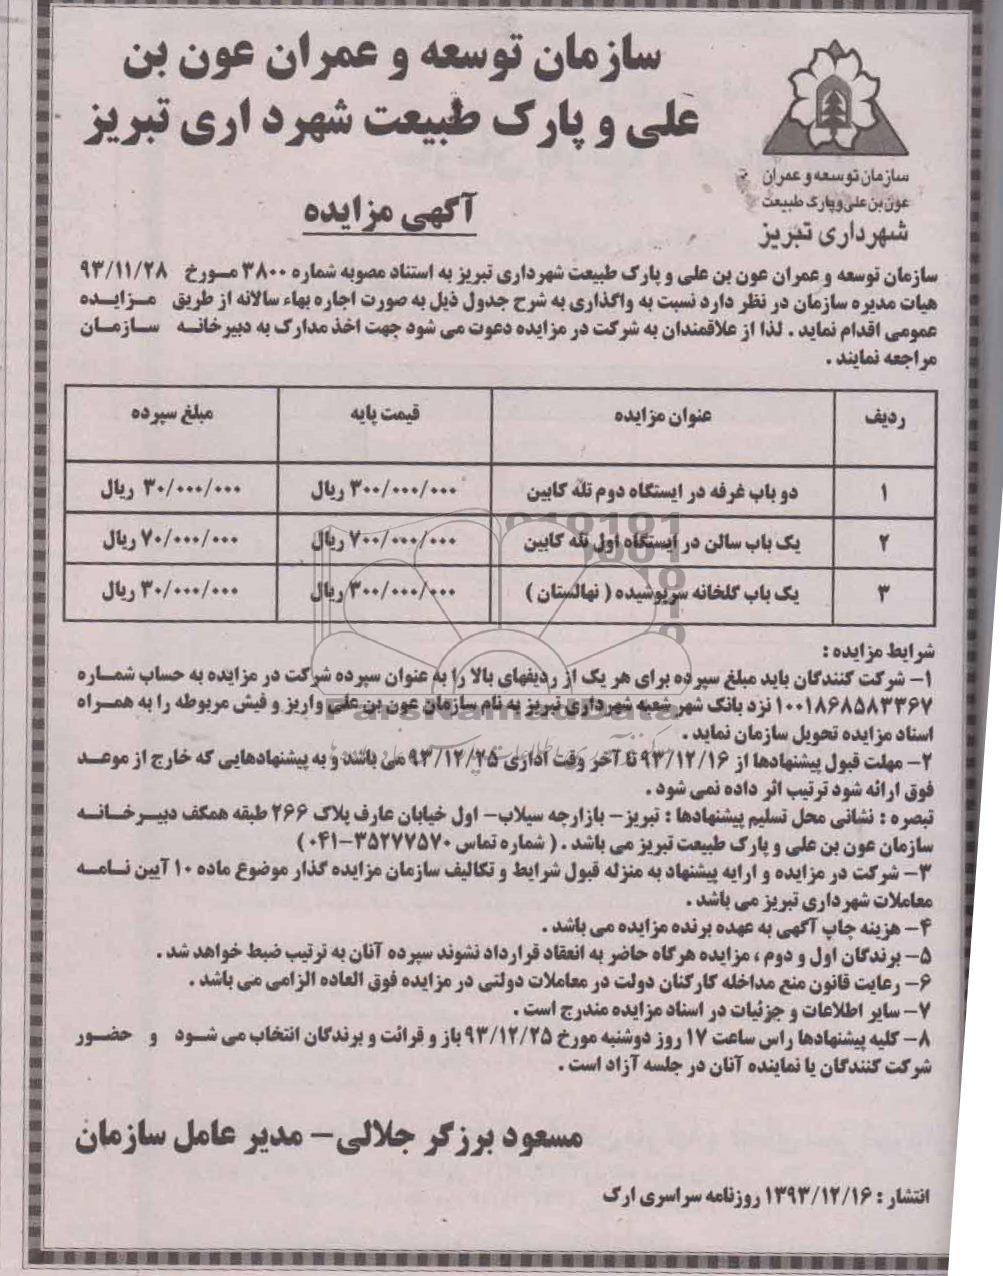 سازمان توسعه و عمران عون بن
علی و پارک طبیعت شهرداری تبریز
سازمان توسعه و عمران
عون بن علی و پارک طبیعت
شهرداری تبریز
آگهی مزایده
سازمان توسعه و عمران عون بن علی و پارک طبیعت شهرداری تبریز به استناد مصوبه شماره ۳۸۰۰ مورخ ۹۳/۱۱/۲۸
هیات مدیره سازمان در نظر دارد نسبت به واگذاری به شرح جدول ذیل به صورت اجاره بهاء سالانه از طریق مزایده
عمومی اقدام نماید . لذا از علاقمندان به شرکت در مزایده دعوت می شود جهت اخذ مدارک به دبیرخانه سازمان
مراجعه نمایند .
ردیف عنوان مزایده قیمت پایه مبلغ سپرده
۱ دو باب غرفه در ایستگاه دوم تله کابین ۳۰۰/۰۰۰/۰۰۰ ریال ۳۰/۰۰۰/۰۰۰ ریال
۲ یک باب سالن در ایستگاه اول تله کابین ۷۰۰/۰۰۰/۰۰۰ ریال ۷۰/۰۰۰/۰۰۰ ریال
۳ یک باب گلخانه سرپوشیده ( نهالستان ) ۳۰۰/۰۰۰/۰۰۰ ریال ۳۰/۰۰۰/۰۰۰ ریال
شرایط مزایده :
۱- شرکت کنندگان باید مبلغ سپرده برای هر یک از ردیفهای بالا را به عنوان سپرده شرکت در مزایده به حساب شماره
۱۰۰۱۸۶۸۵۸۳۳۶۷ نزد بانک شهر شعبه شهرداری تبریز به نام سازمان عون بن علی واریز و فیش مربوطه را به همراه
اسناد مزایده تحویل سازمان نماید .
ParsNamadData
۲- مهلت قبول پیشنهادها از ۹۳/۱۲/۱۶ تا آخر وقت اداری ۹۳/۱۲/۲۵ می باشد و به پیشنهادهایی که خارج از موعد
فوق ارائه شود ترتیب اثر داده نمی شود .
تبصره : نشانی محل تسلیم پیشنهادها : تبریز- بازارچه سیلاب- اول خیابان عارف پلاک ۲۶۶ طبقه همکف دبیرخانه
سازمان عون بن علی و پارک طبیعت تبریز می باشد . ( شماره تماس ۳۵۲۷۷۵۷۰-۰۴۱ )
۳- شرکت در مزایده و ارایه پیشنهاد به منزله قبول شرایط و تکالیف سازمان مزایده گذار موضوع ماده ۱۰ آیین نامه
معاملات شهرداری تبریز می باشد .
۴- هزینه چاپ آگهی به عهده برنده مزایده می باشد .
۵- برندگان اول و دوم ، مزایده هرگاه حاضر به انعقاد قرارداد نشوند سپرده آنان به ترتیب ضبط خواهد شد .
۶- رعایت قانون منع مداخله کارکنان دولت در معاملات دولتی در مزایده فوق العاده الزامی می باشد .
۷- سایر اطلاعات و جزئیات در اسناد مزایده مندرج است .
۸- کلیه پیشنهادها راس ساعت ۱۷ روز دوشنبه مورخ ۹۳/۱۲/۲۵ باز و قرائت و برندگان انتخاب می شود و حضور
شرکت کنندگان یا نماینده آنان در جلسه آزاد است .
مسعود برزگر جلالی- مدیر عامل سازمان
انتشار : ۱۳۹۳/۱۲/۱۶ روزنامه سراسری ارک